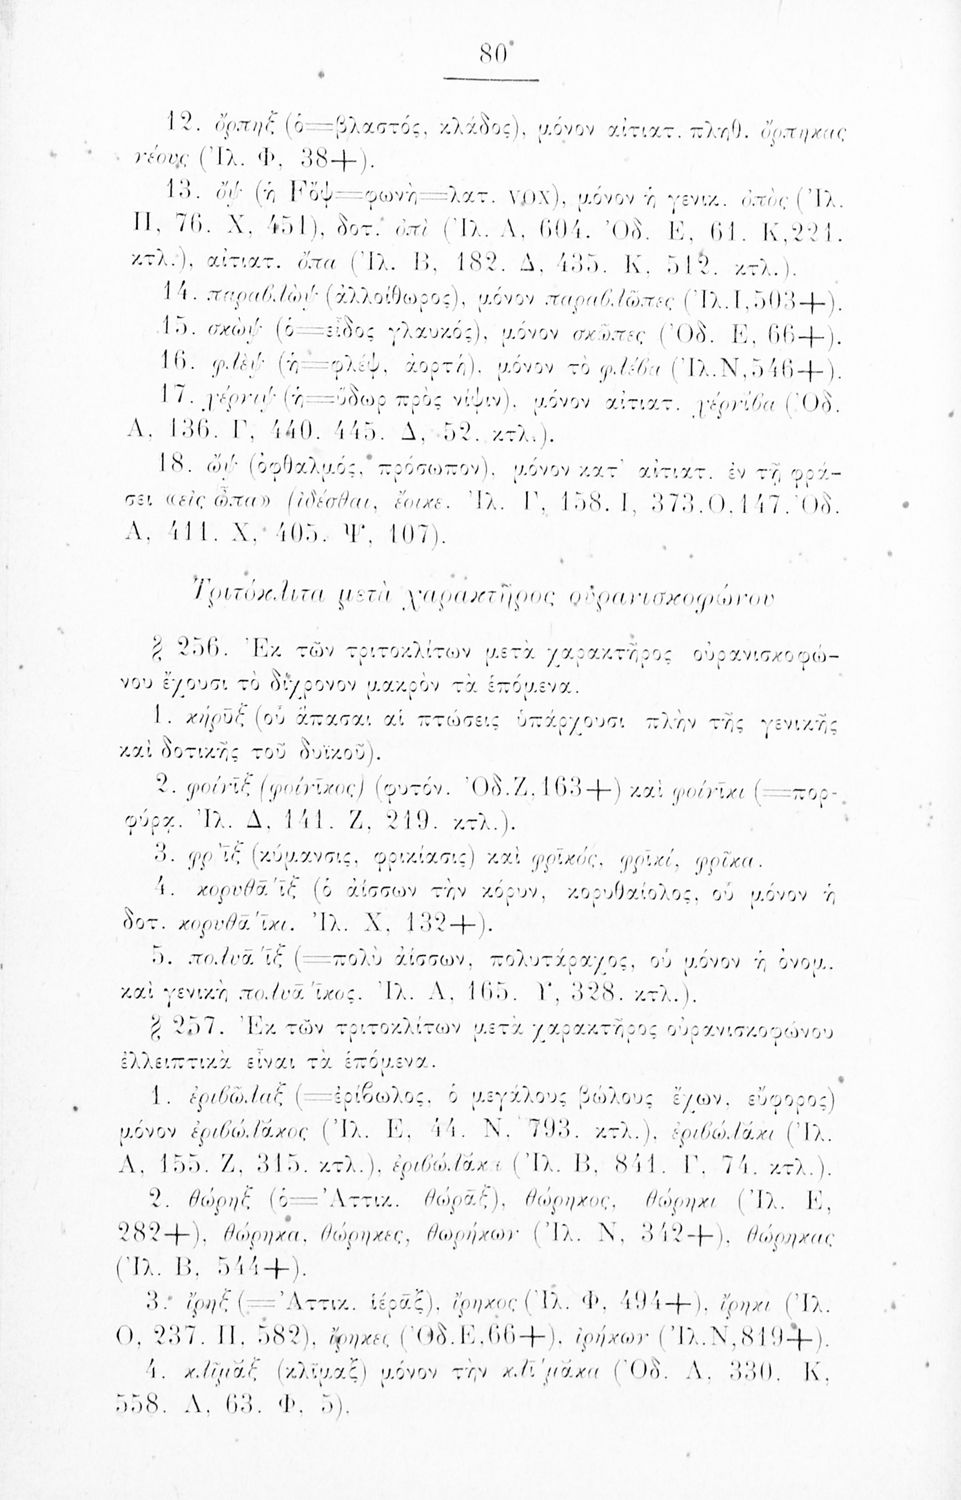 80
12. ὄρπηξ (ὁ=βλαστός, κλάδος), μόνον αἰτιατ. πληθ. ὄρπηκας
νέους (Ἰλ. Φ, 38+).
13. ὄψ (ἡ Fὄψ=φωνὴ=λατ. vox), μόνον ἡ γενικ. ὀπὸς (Ἰλ.
Π, 76. Χ, 451), δοτ. ὀπὶ (Ἰλ. Α, 604. Ὀδ. Ε, 61. Κ,221.
κτλ.), αἰτιατ. ὄπα (Ἰλ. Β, 182. Δ, 435. Κ, 512. κτλ.).
14. παραβλὼψ (ἀλλοίθωρος), μόνον παραβλῶπες (Ἰλ.Ι,503+).
15. σκὼψ (ὁ=εἶδος γλαυκός), μόνον σκῶπες (Ὀδ. Ε, 66+).
16. φλὲψ (ἡ=φλέψ, ἀορτή), μόνον τὸ φλέβα (Ἰλ.Ν,546+).
17. χέρνιψ (ἡ=ὕδωρ πρὸς νίψιν), μόνον αἰτιατ. χέρνιβα (Ὀδ.
Α, 136. Γ, 440. 445. Δ, 52. κτλ.).
18. ὢψ (ὀφθαλμός, πρόσωπον), μόνον κατ' αἰτιατ. ἐν τῇ φρά-
σει «εἰς ὦπα» (ἰδέσθαι, ἔοικε. Ἰλ. Γ, 158. Ι, 373.Ο.147. Ὀδ.
Α, 411. Χ, 405. Ψ, 107).
Τριτόκλιτα μετὰ χαρακτῆρος οὐρανισκοφώνου
§ 256. Ἐκ τῶν τριτοκλίτων μετὰ χαρακτῆρος οὐρανισκοφώ-
νου ἔχουσι τὸ δίχρονον μακρὸν τὰ ἑπόμενα.
1. κήρῡξ (οὗ ἅπασαι αἱ πτώσεις ὑπάρχουσι πλὴν τῆς γενικῆς
καὶ δοτικῆς τοῦ δυϊκοῦ).
2. φοίνῑξ (φοίνῑκος) (φυτόν. Ὀδ.Ζ,163+) καὶ φοίνῑκι (=πορ-
φύρᾳ. Ἰλ. Δ, 141. Ζ, 219. κτλ.).
3. φρῑ̀ξ (κύμανσις, φρικίασις) καὶ φρῑκός, φρῑκί, φρῖκα.
4. κορυθᾱ́ϊξ (ὁ ἀΐσσων τὴν κόρυν, κορυθαίολος, οὗ μόνον ἡ
δοτ. κορυθᾱ́ϊκι. Ἰλ. Χ, 132+).
5. πολυᾱ́ϊξ (=πολὺ ἀΐσσων, πολυτάραχος, οὗ μόνον ἡ ὀνομ.
καὶ γενικὴ πολυᾱ́ϊκος. Ἰλ. Α, 165. Υ, 328. κτλ.).
§ 257. Ἐκ τῶν τριτοκλίτων μετὰ χαρακτῆρος οὐρανισκοφώνου
ἐλλειπτικὰ εἶναι τὰ ἑπόμενα.
1. ἐριβῶλαξ (=ἐρίβωλος, ὁ μεγάλους βώλους ἔχων, εὔφορος)
μόνον ἐριβώλᾰκος (Ἰλ. Ε, 44. Ν, 793. κτλ.), ἐριβώλᾰκι (Ἰλ.
Α, 155. Ζ, 315. κτλ.), ἐριβώλᾰκα (Ἰλ. Β, 841. Γ, 74. κτλ.).
2. θώρηξ (ὁ=Ἀττικ. θώρᾱξ), θώρηκος, θώρηκι (Ἰλ. Ε,
282+), θώρηκα, θώρηκες, θωρήκων (Ἰλ. Ν, 342+), θώρηκας
(Ἰλ. Β, 544+).
3. ἴρηξ (=Ἀττικ. ἱέρᾱξ), ἴρηκος (Ἰλ. Φ, 494+), ἴρηκι (Ἰλ.
Ο, 237. Π, 582), ἴρηκες (Ὀδ.Ε,66+), ἰρήκων (Ἰλ.Ν,819+).
4. κλῖμᾰξ (κλῖμαξ) μόνον τὴν κλῑ́μᾰκα (Ὀδ. Α, 330. Κ,
558. Λ, 63. Φ, 5).